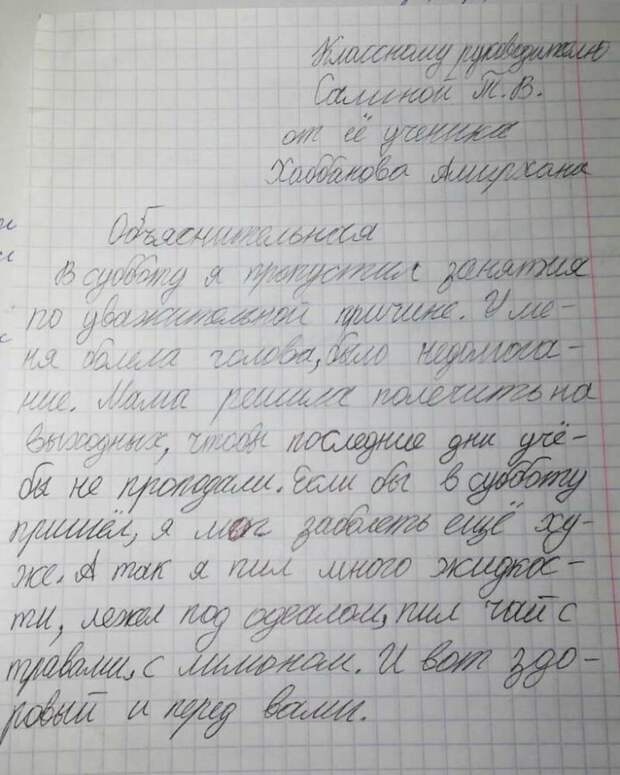 Классному руководителю
Салиной Т.В.
от её ученика
Хаббанова Амирхана
Объяснительная
В субботу я пропустил занятия
по уважительной причине. У ме-
ня болела голова, было недомога-
ние. Мама решила полечить на
выходных, чтобы последние дни учё-
бы не пропадали. Если бы в субботу
пришёл, я мог заболеть ещё ху-
же. А так я пил много жидкос-
ти, лежал под одеялом, пил чай с
травами, с лимоном. И вот здо-
ровый и перед вами.